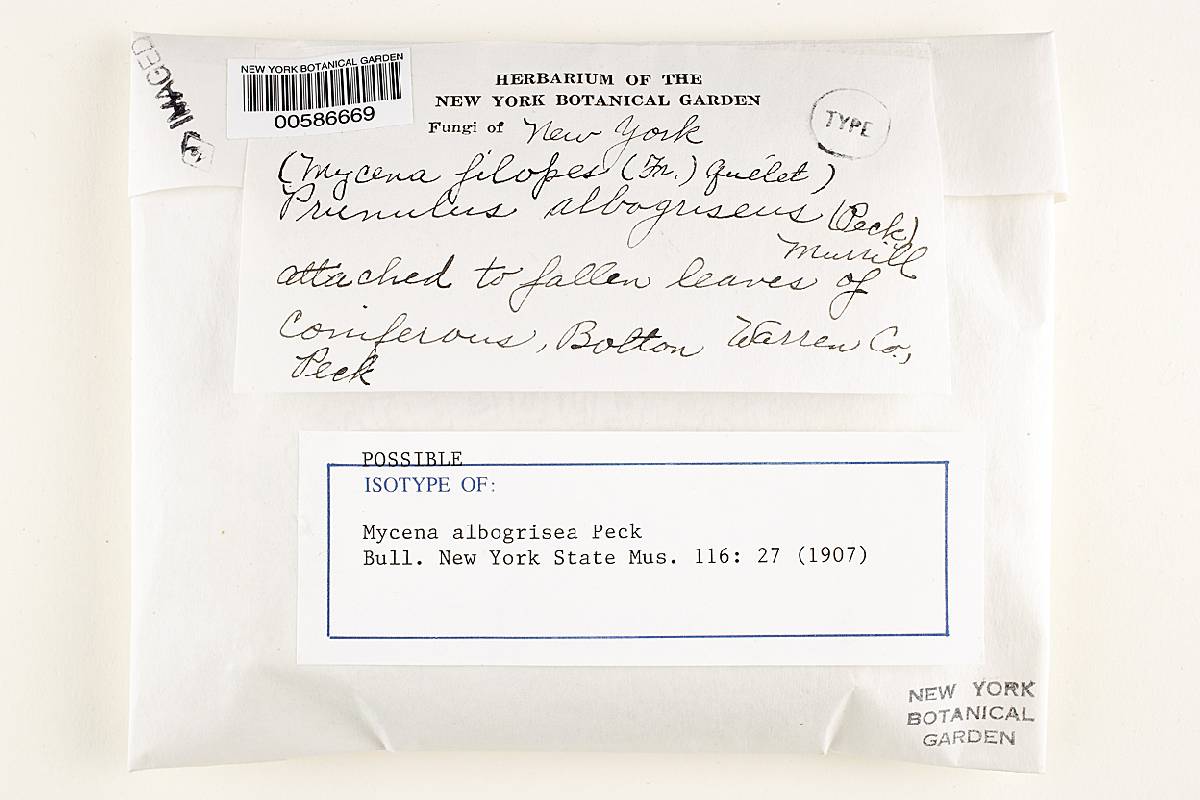 IMAGED
NEW YORK BOTANICAL GARDEN
00586669
HERBARIUM OF THE
NEW YORK BOTANICAL GARDEN
Fungi of New York
TYPE
(Mycena filopes (Fr.) Quélet)
Prunulus albogriseus (Peck)
Murrill
attached to fallen leaves of
Coniferous, Bolton Warren Co.,
Peck
POSSIBLE
ISOTYPE OF:
Mycena albogrisea Peck
Bull. New York State Mus. 116: 27 (1907)
NEW YORK
BOTANICAL
GARDEN